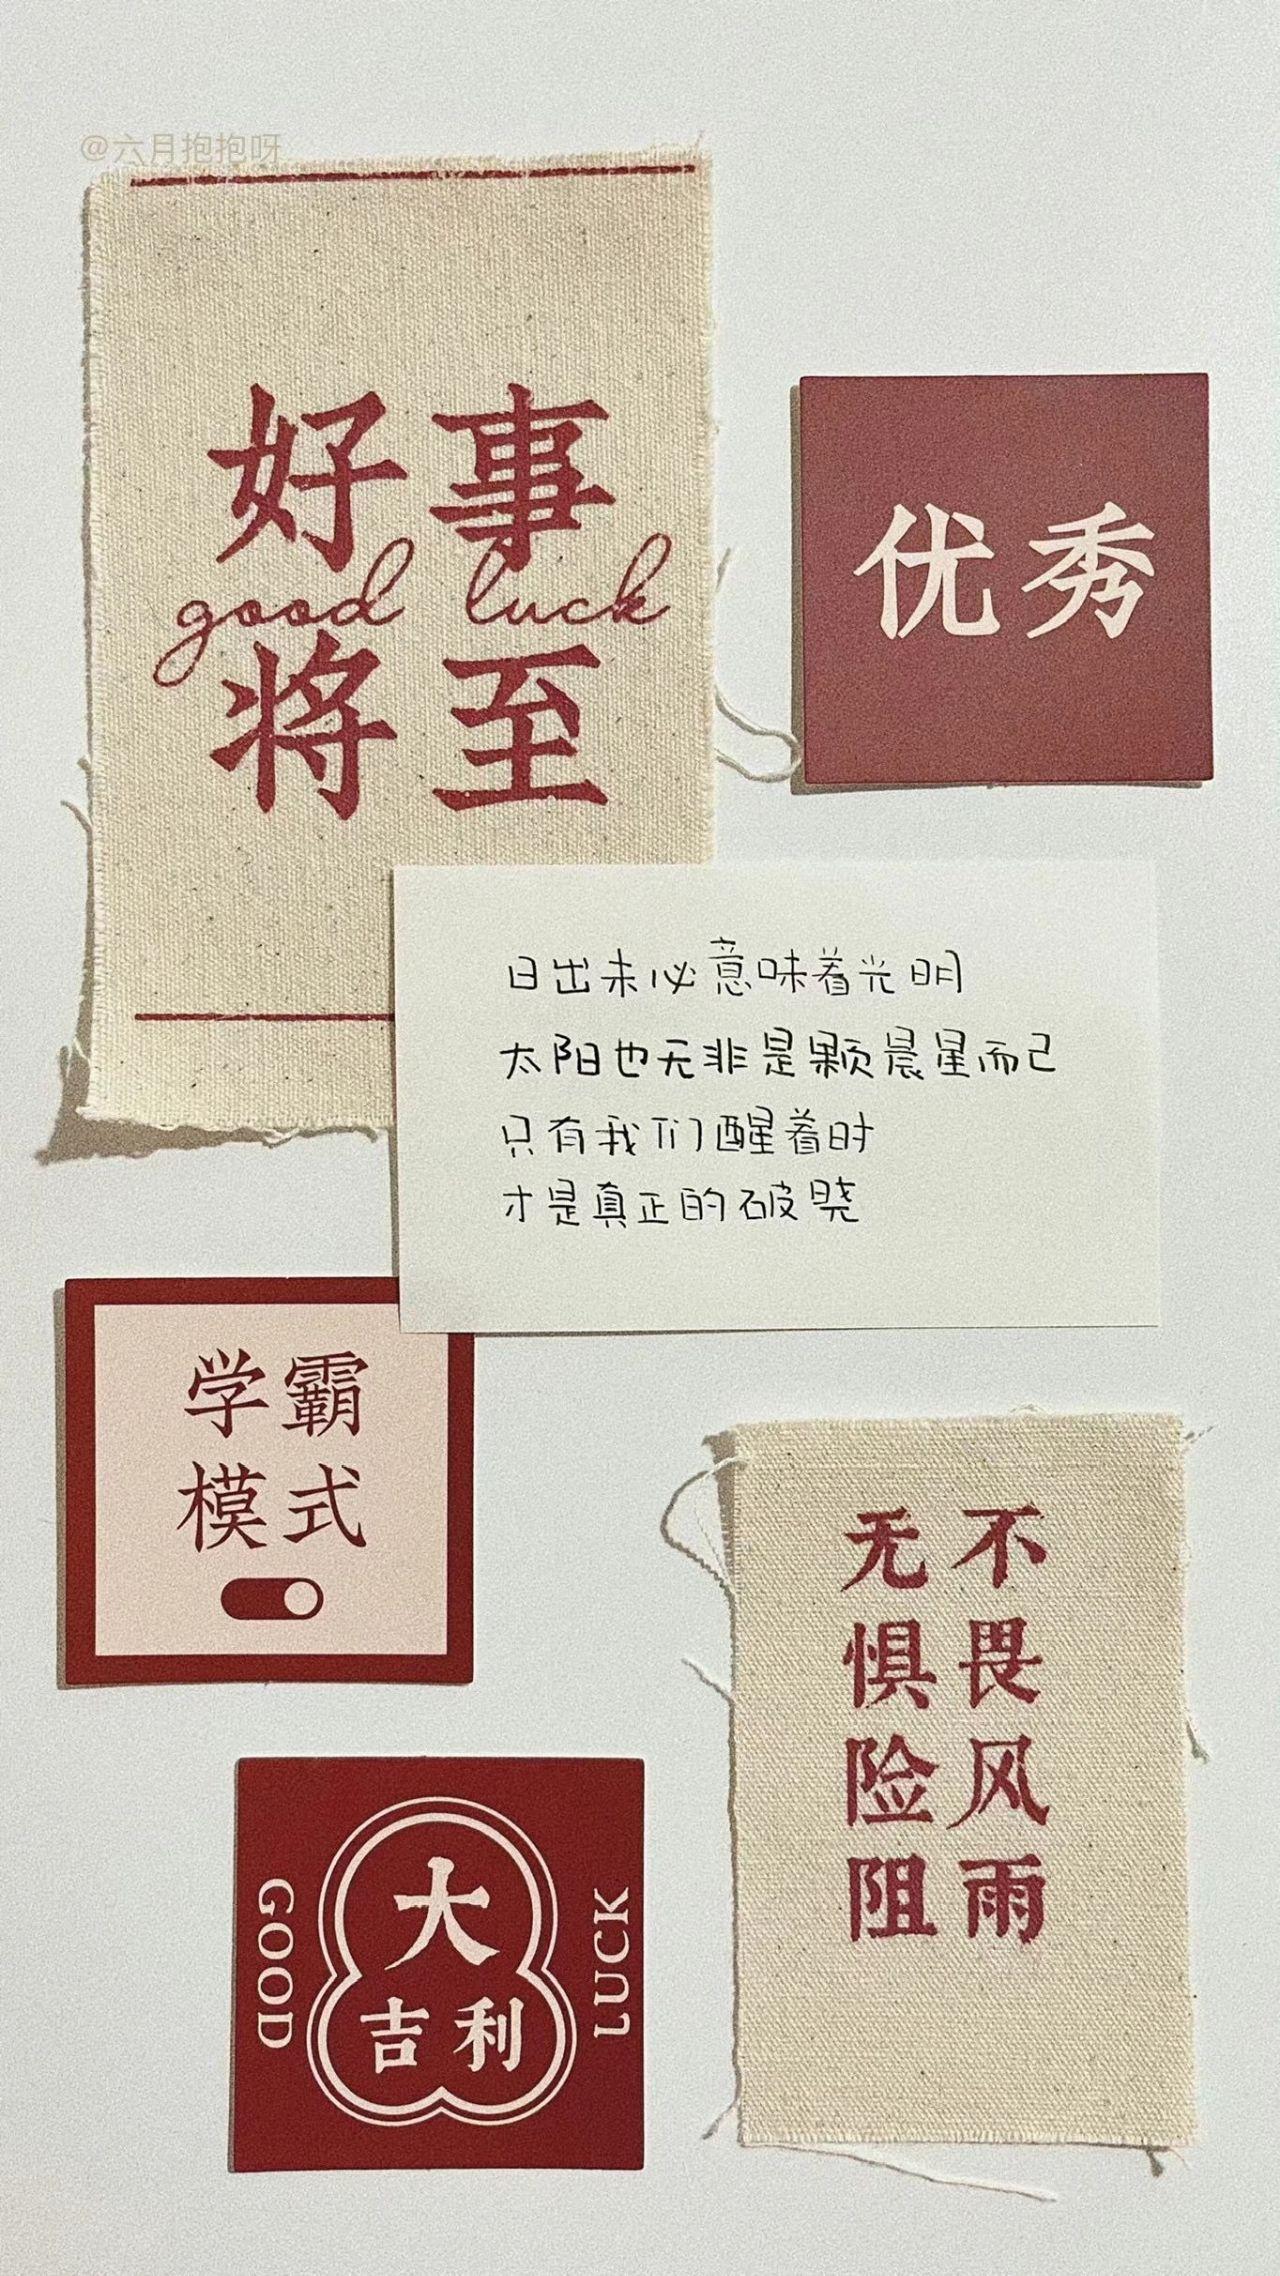 @六月抱抱呀
好事
good luck
将至
优秀
日出未必意味着光明
太阳也无非是颗晨星而已
只有我们醒着时
才是真正的破晓
学霸
模式
不畏风雨
无惧险阻
大
吉利
GOOD
LUCK